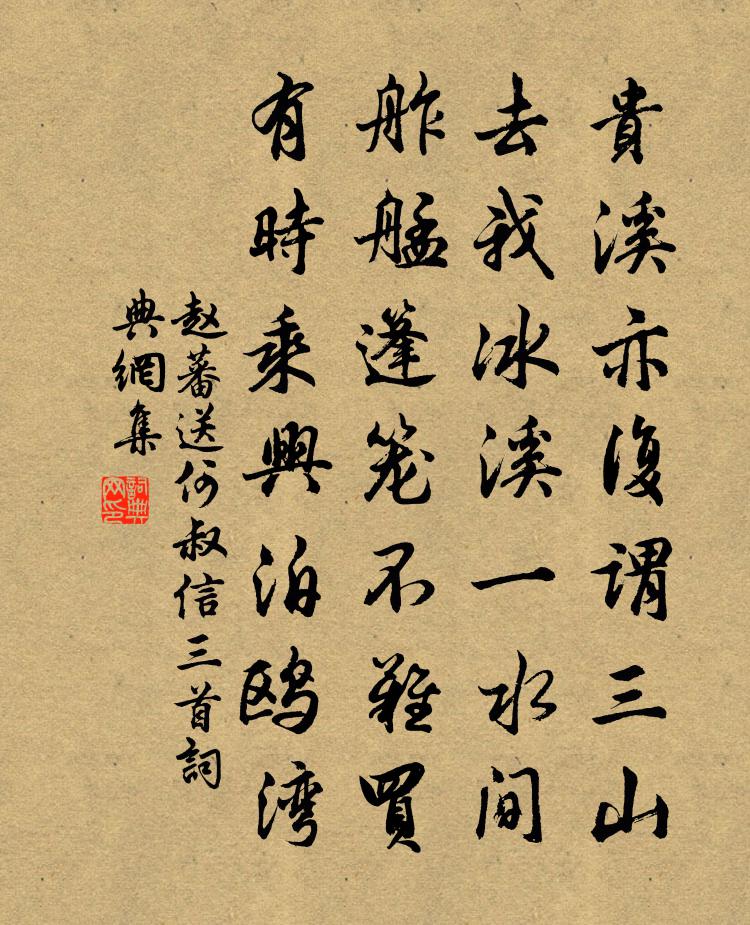 貴溪亦復謂三山
去我冰溪一水間
舴艋篷笼不難買
有時乘興泊鸥湾
赵蕃送何叔信三首詞
典網集
詞典网印